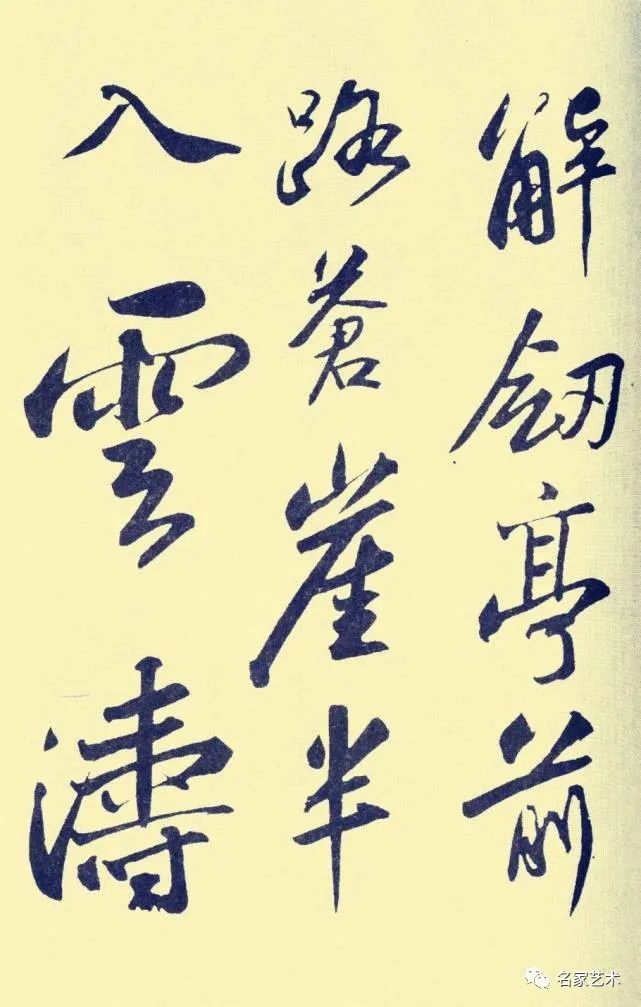 解劎亭前
路蒼崖半
入雲濤
名家艺术